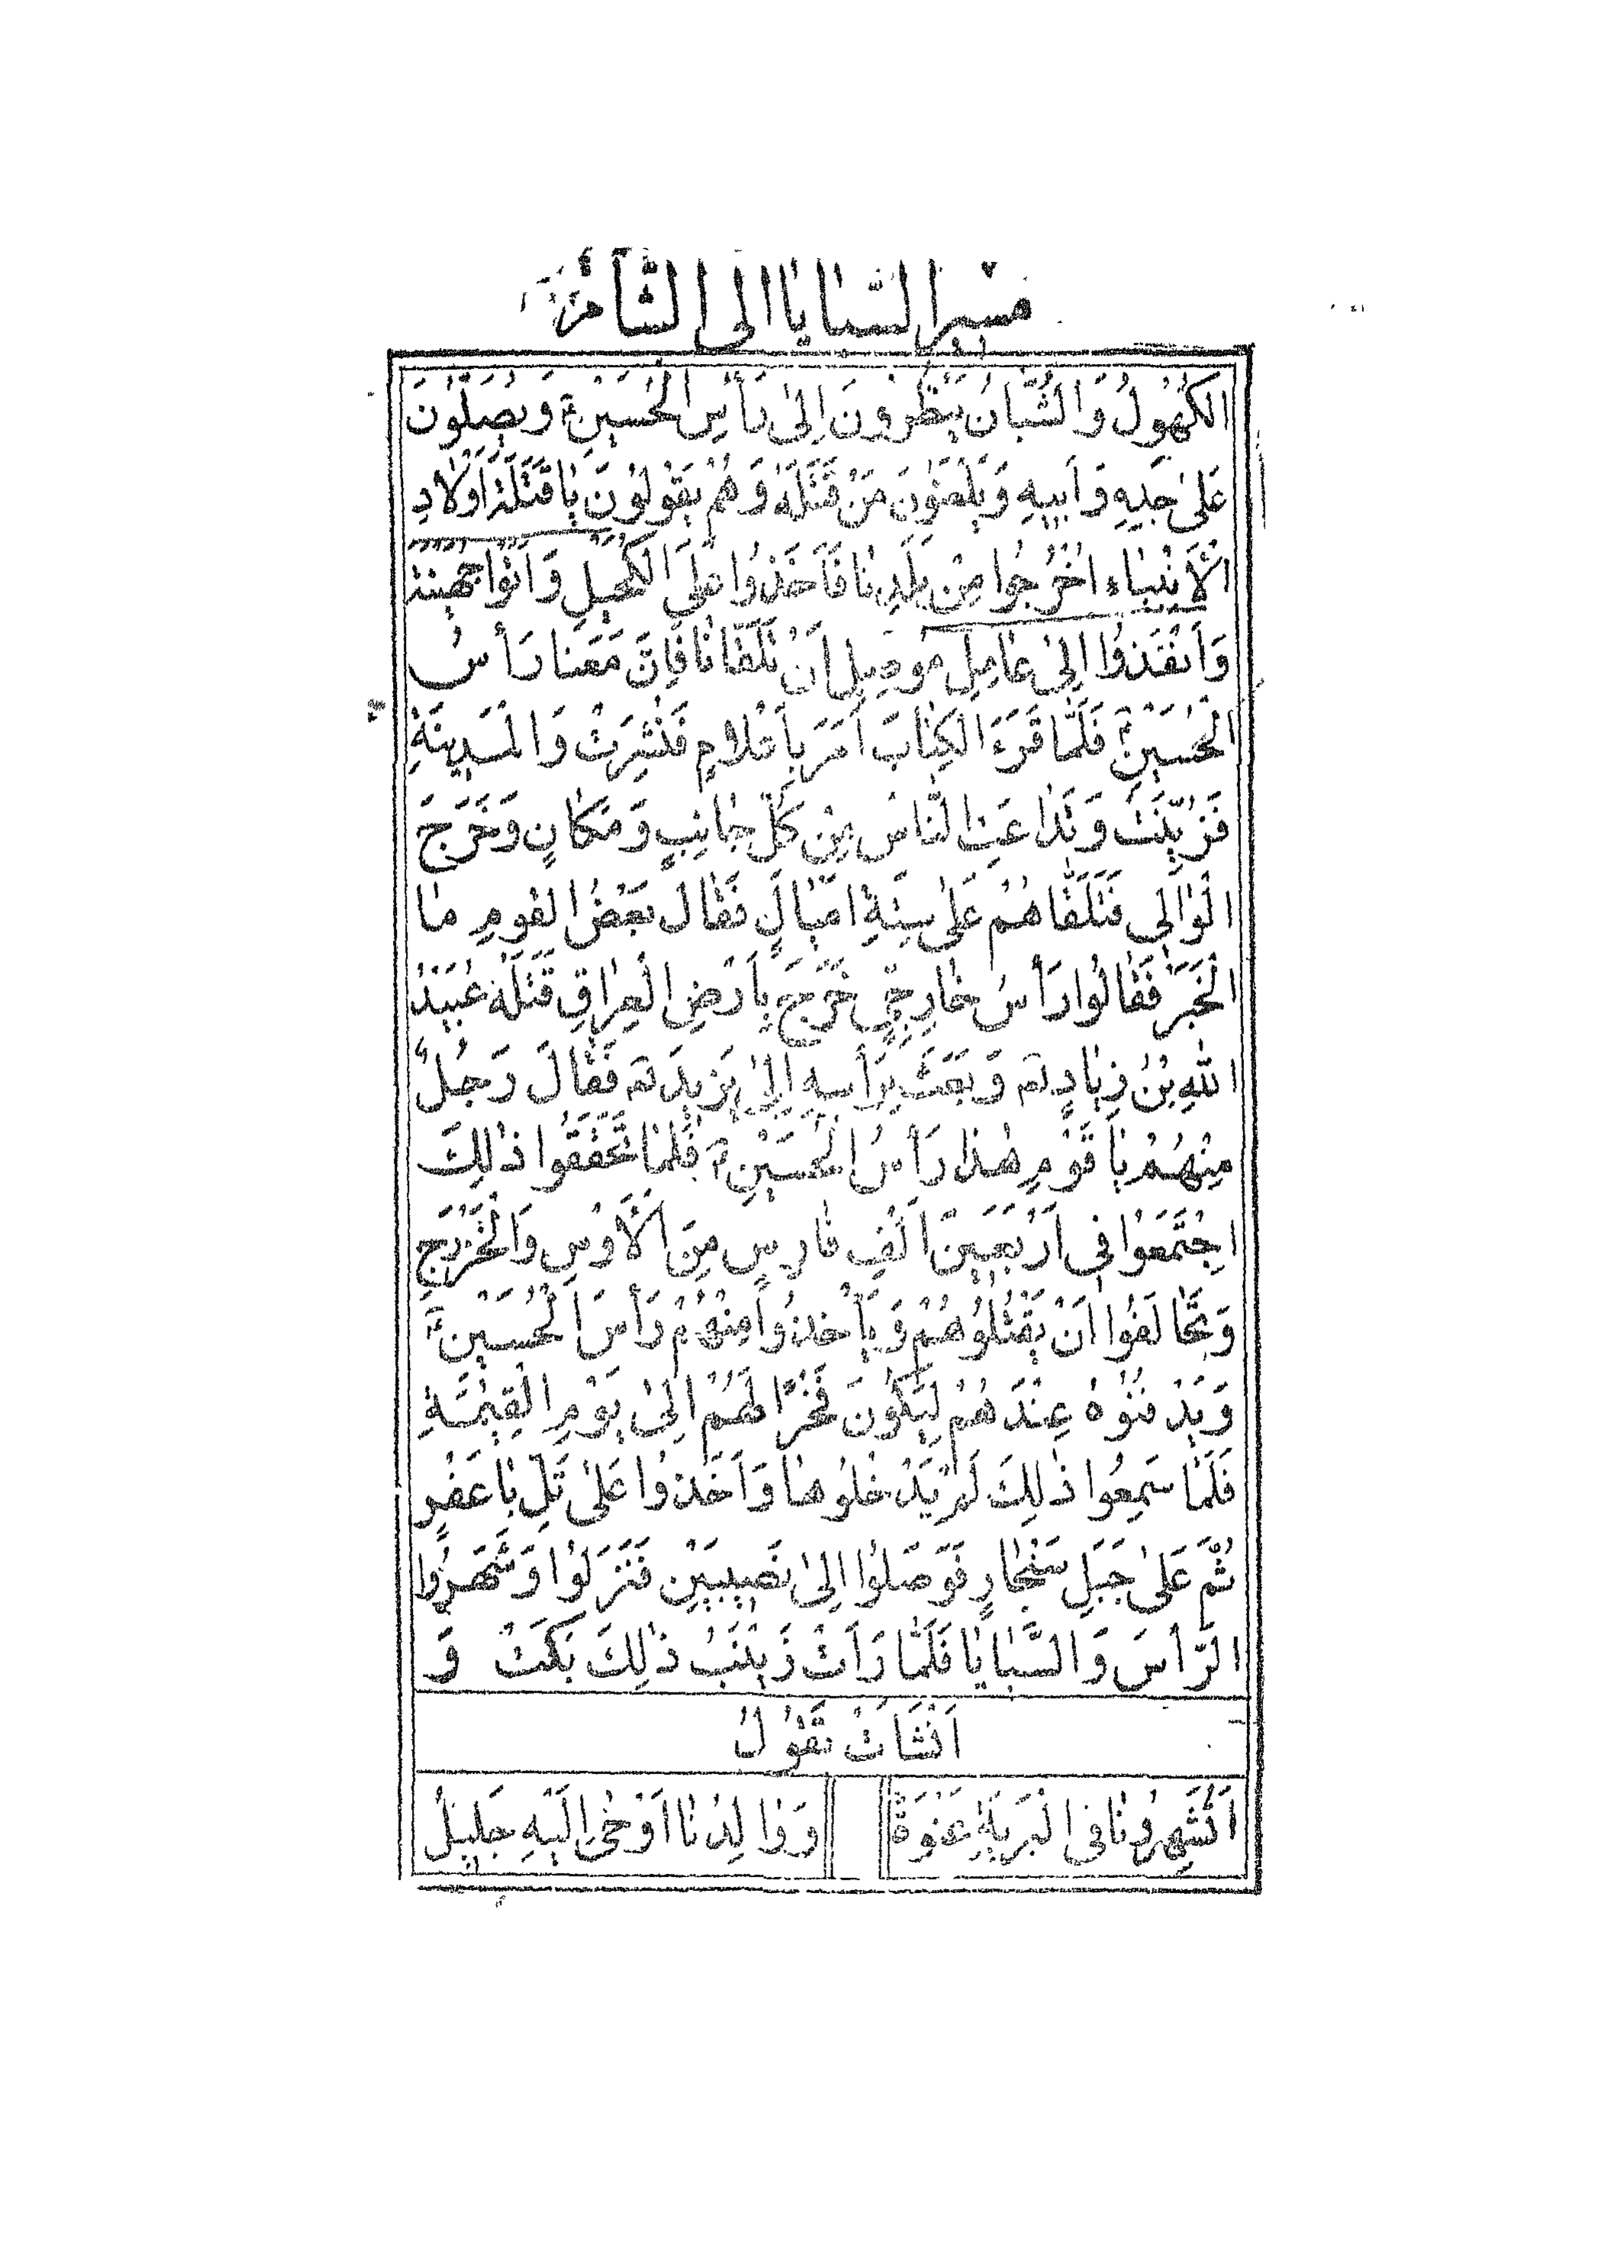 مَسيرِ السَّبايا الى الشّام
الكُهُولُ وَالشُّبّانُ يَنْظُرُونَ اِلىٰ رَأْسِ الْحُسَيْنِ ع وَيُصَلُّونَ
عَلىٰ جَدِّهِ وَاَبيهِ وَيَلْعَنُونَ مَنْ قَتَلَهُ وَهُمْ يَقُولُونَ يا قَتَلَةَ اَوْلادِ
الْاَنْبِياءِ اُخْرُجُوا مِنْ بَلَدِنا فَاَخَذُوا عَلَى الكُحَيْلِ وَاَتَوْا جُهَيْنَةَ
وَاَنْفَذُوا اِلىٰ عامِلِ مُوصِلِ اَنْ تَلَقّانا فَاِنَّ مَعَنا رَأْسُ
الْحُسَيْنِ ع فَلَمّا قَرَءَ الكِتابَ اَمَرَ بِاَعْلامٍ فَنُشِرَتْ وَالْمَدينَةِ
فَزُيِّنَتْ وَتَداعَتِ النّاسُ مِنْ كُلِّ جانِبٍ وَمَكانٍ وَخَرَجَ
الْوالى فَتَلَقّاهُمْ عَلىٰ سِتَّةِ اَمْيالٍ فَقالَ بَعْضُ القَومِ مَا
الْخَبَرُ فَقالُوا رَأْسُ خارِجِىٍّ خَرَجَ بِاَرْضِ الْعِراقِ قَتَلَهُ عُبَيْدُ
اللهِ بْنُ زِيادٍ لع وَبَعَثَ بِرَأْسِهِ اِلىٰ يَزيدَ لع فَقالَ رَجُلٌ
مِنْهُمْ يا قَوْمِ هٰذا رَأْسُ الْحُسَيْنِ ع فَلَمّا تَحَقَّقُوا ذٰلِكَ
اجْتَمَعُوا فى اَرْبَعينَ اَلْفِ فارِسٍ مِنَ الْاَوْسِ وَالْخَزْرَجِ
وَتَحالَفُوا اَنْ يَقْتُلُوهُمْ وَيَأْخُذُوا مِنْهُمْ رَأْسَ الْحُسَيْنِ ع
وَيَدْفِنُوهُ عِنْدَهُمْ لِيَكُونَ فَخْرًا لَهُمْ اِلىٰ يَوْمِ الْقِيٰمَةِ
فَلَمّا سَمِعُوا ذٰلِكَ لَمْ يَدْخُلُوها وَاَخَذُوا عَلىٰ تَلِّ باعَفْرٍ
ثُمَّ عَلىٰ جَبَلِ سَنْجارٍ فَوَصَلُوا اِلىٰ نَصيبينِ فَنَزَلُوا وَشَهَرُوا
الرَّأْسَ وَالسَّبايا فَلَمّا رَاَتْ زَيْنَبُ ذٰلِكَ بَكَتْ وَ
اَنْشَاَتْ تَقُولُ
اَتُشَهِّرُونا فى الْبَرِيَّةِ عَنْوَةً وَوالِدُنا اَوْحىٰ اِلَيْهِ جَليلُ